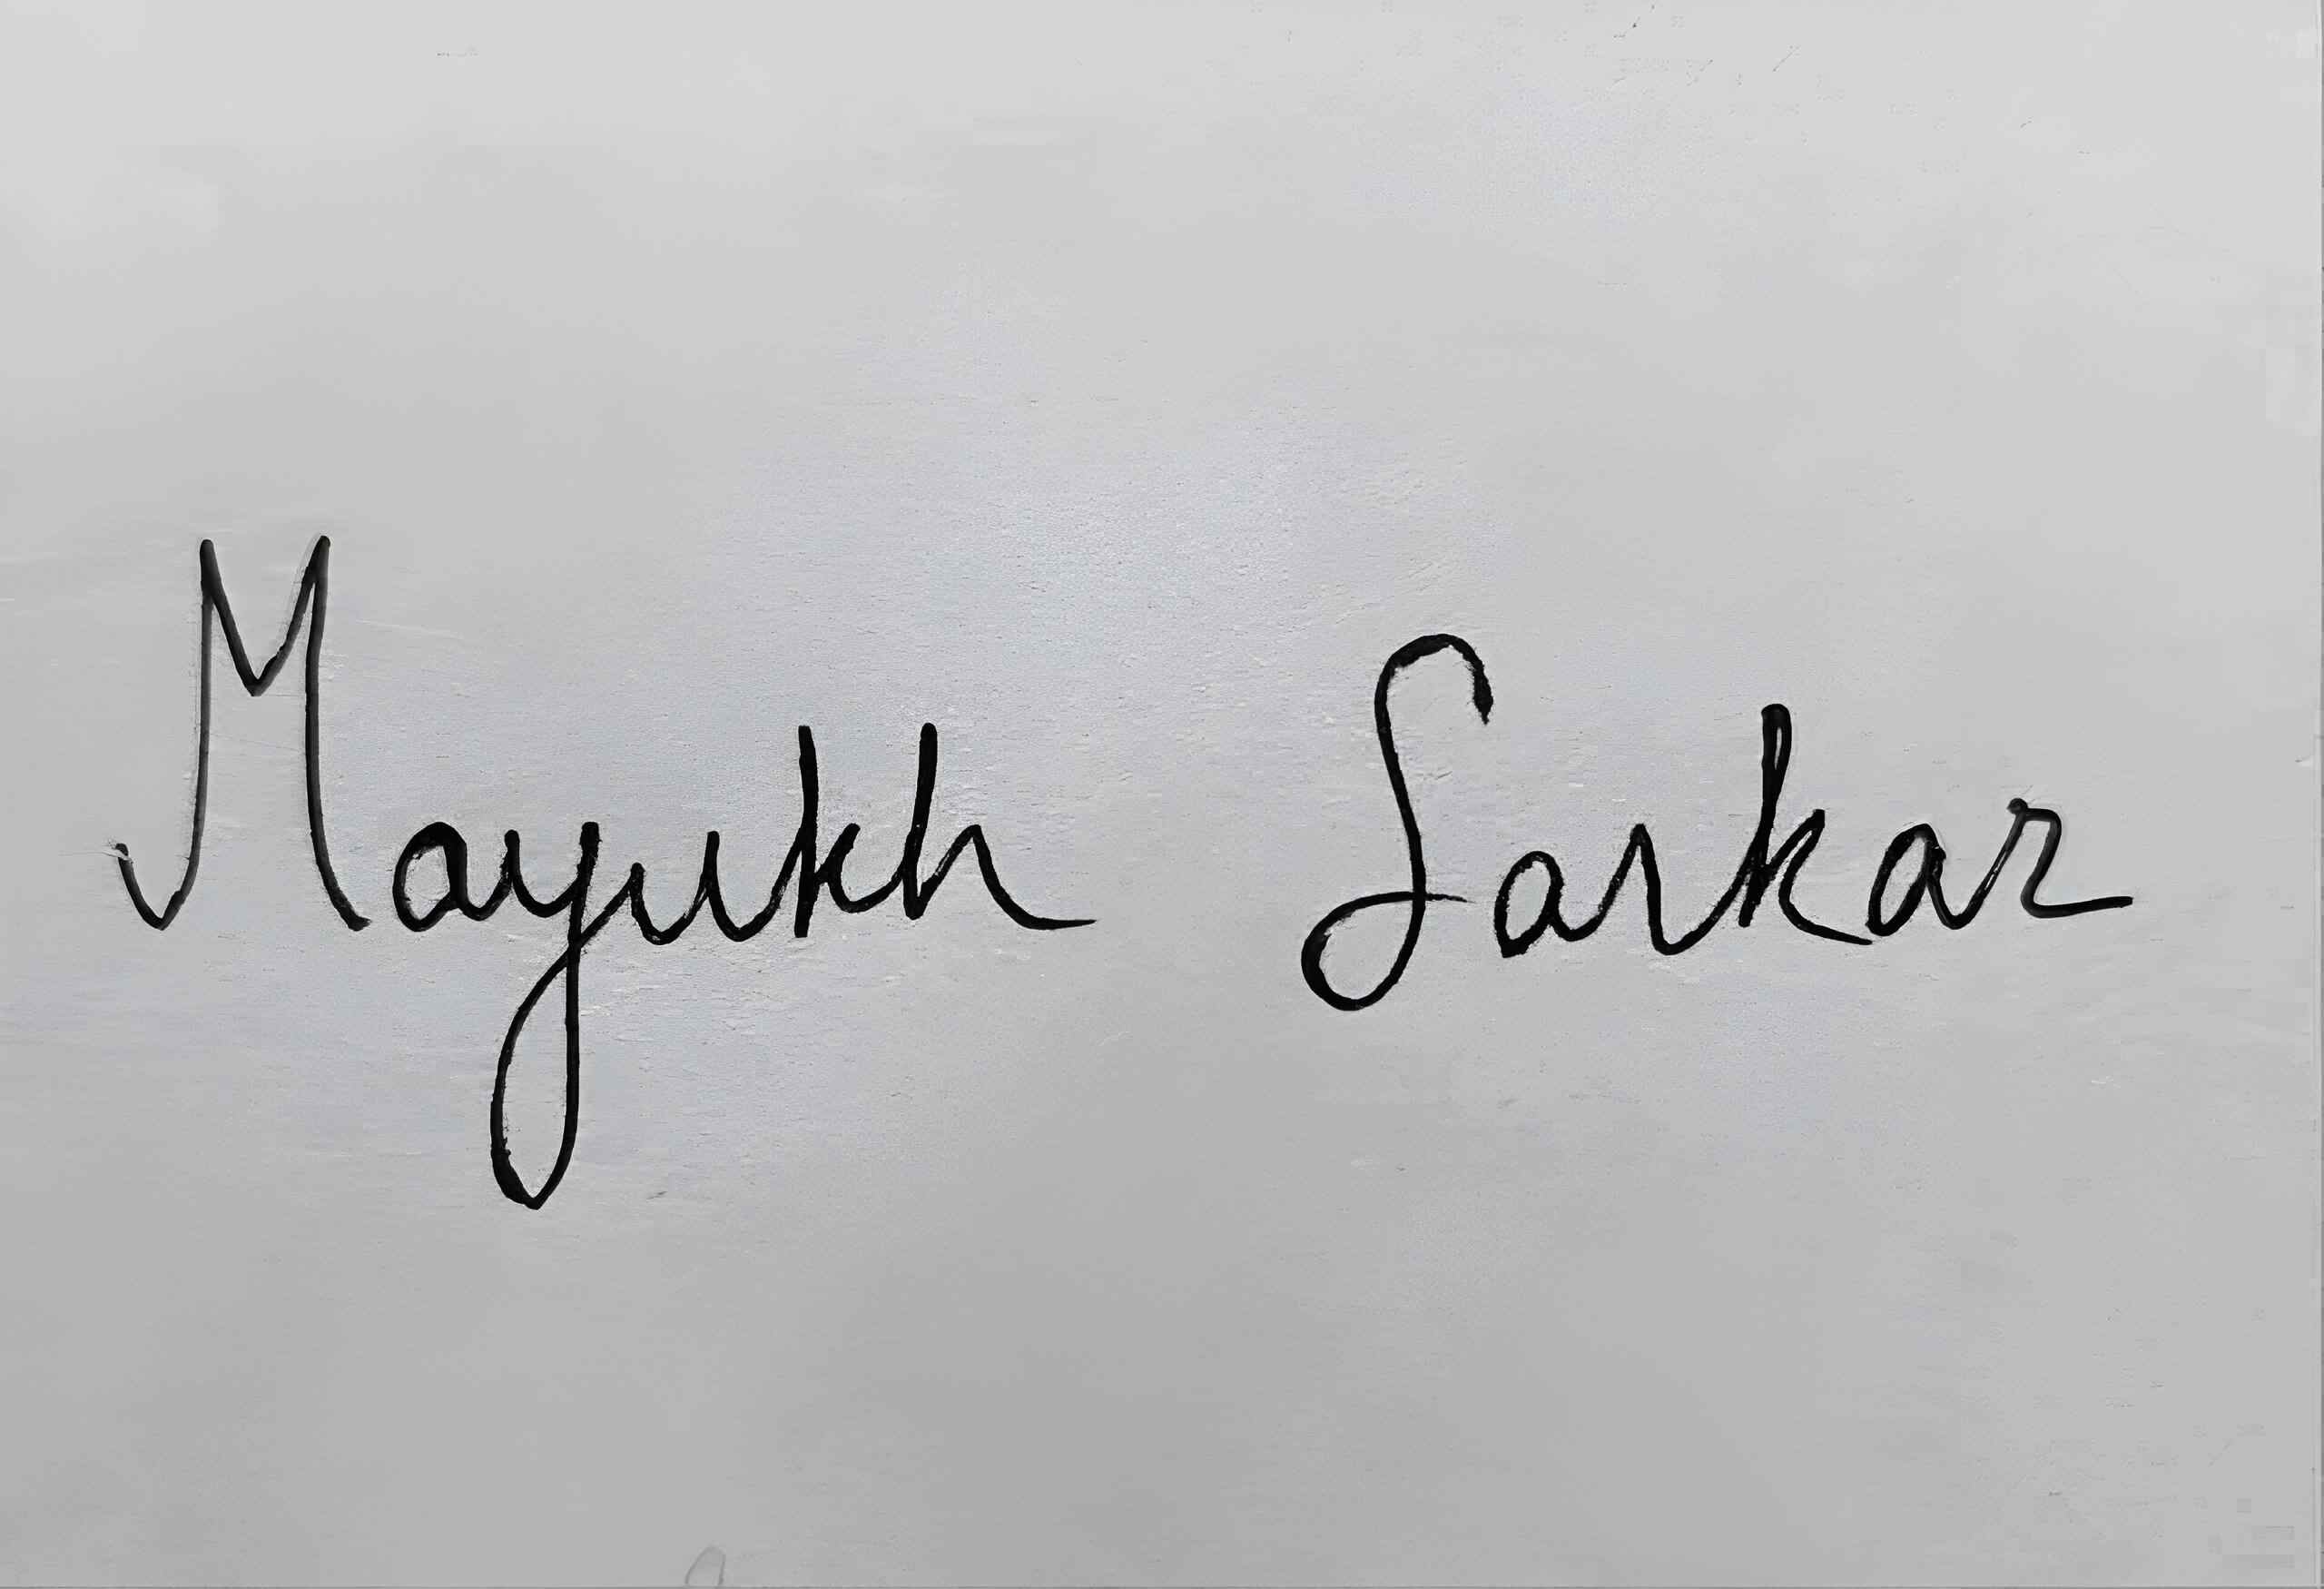 Mayukh Sarkar